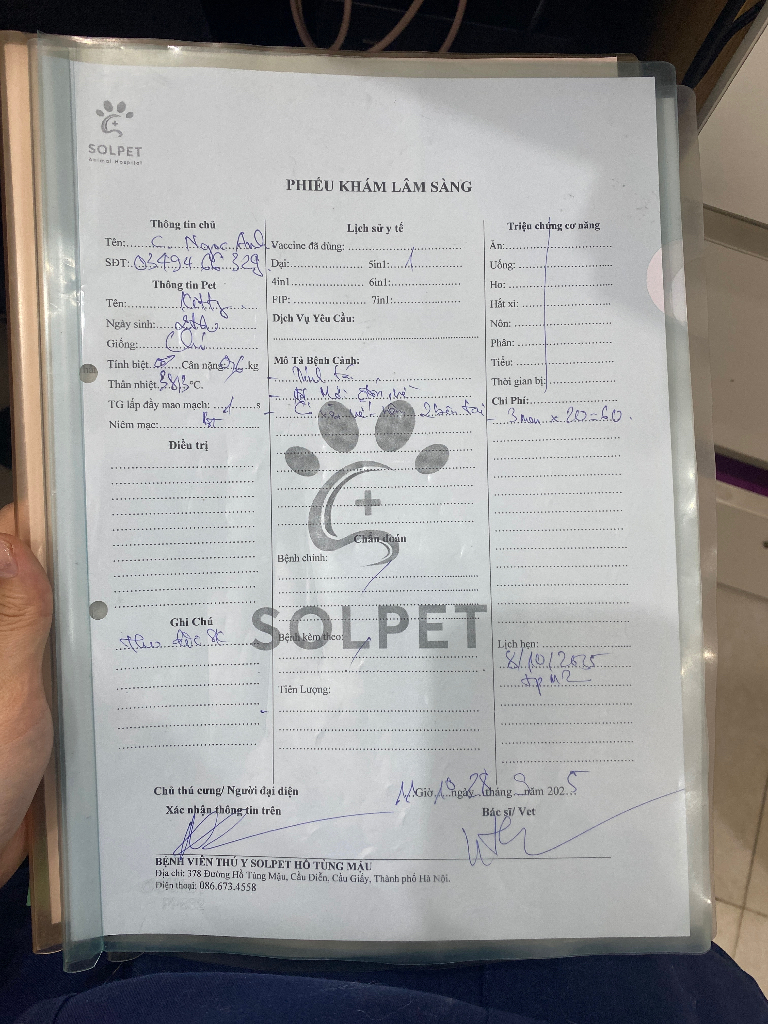 SOLPET
Animal Hospital
PHIẾU KHÁM LÂM SÀNG
Thông tin chủ
Tên: C. Ngọc Anh
SĐT: 03494 06 329
Thông tin Pet
Tên: Kitty
Ngày sinh:
Giống: Chó
Tính biệt: Cân nặng: kg
Thân nhiệt: 38,3 °C.
TG lấp đầy mao mạch: s
Niêm mạc: Bt
Điều trị
Ghi Chú
Theo dõi SK
Lịch sử y tế
Vaccine đã dùng:
Dại: 5in1:
4in1 6in1:
FIP: 7in1:
Dịch Vụ Yêu Cầu:
Mô Tả Bệnh Cảnh:
Mới đón về
Chẩn đoán
Bệnh chính:
SOLPET
Bệnh kèm theo:
Tiên Lượng:
Triệu chứng cơ năng
Ăn:
Uống:
Ho:
Hắt xì:
Nôn:
Phân:
Tiểu:
Thời gian bị:
Chi Phí:
x 20 = 60
Lịch hẹn:
8/10/2025
Chủ thú cưng/ Người đại diện
Xác nhận thông tin trên
Giờ, ngày 28 tháng 9 năm 2025
Bác sĩ/ Vet
BỆNH VIỆN THÚ Y SOLPET HỒ TÙNG MẬU
Địa chỉ: 378 Đường Hồ Tùng Mậu, Cầu Diễn, Cầu Giấy, Thành phố Hà Nội.
Điện thoại: 086.673.4558